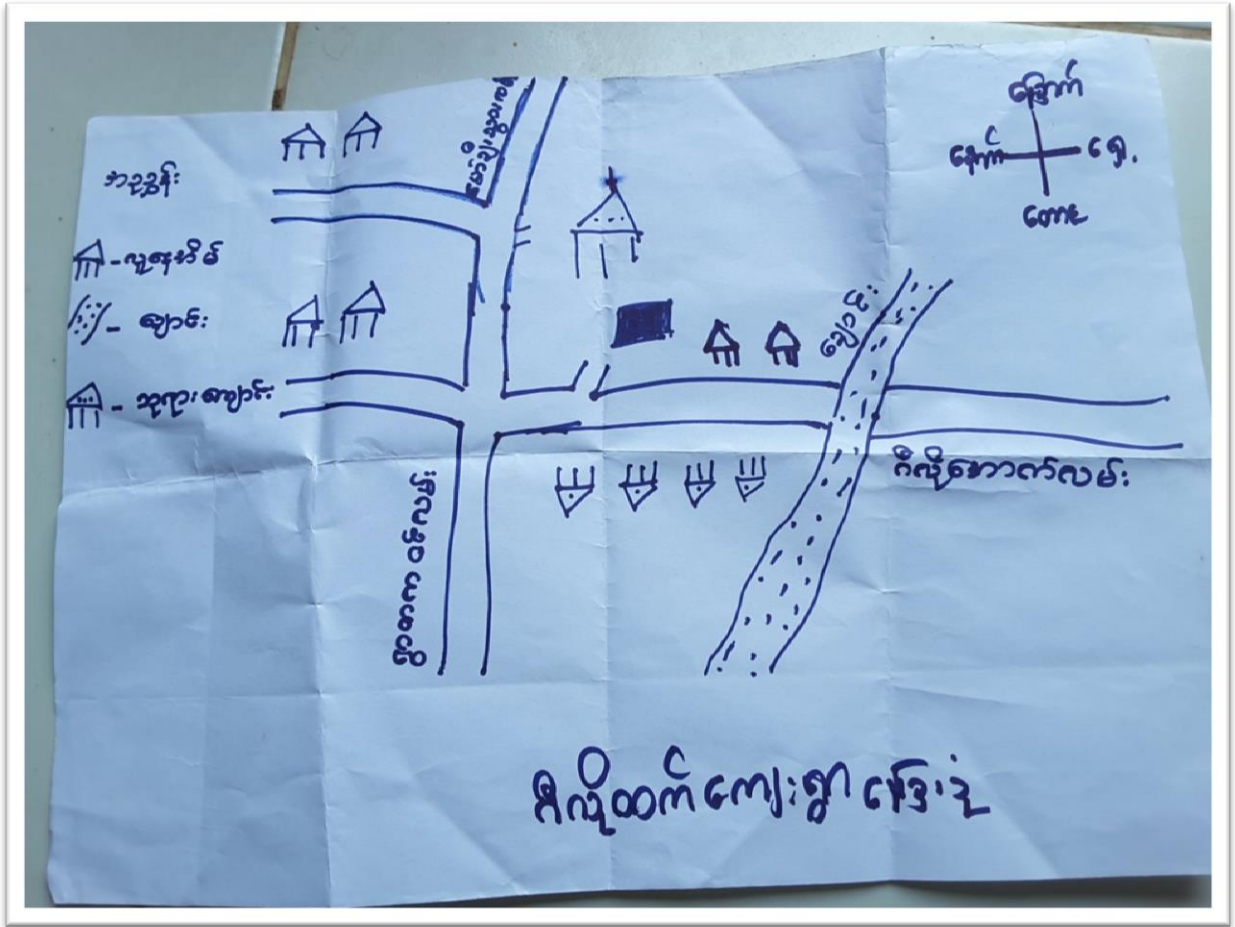 မြောက်
နောက် ရှေ့
တောင်
အညွှန်း
-လူနေအိမ်
- ချောင်း
- ဘုရားကျောင်း
ချောင်း
ဂီလို့အောက်လမ်း
ဂီလို့ထက် ကျေးရွာ မြေပုံ